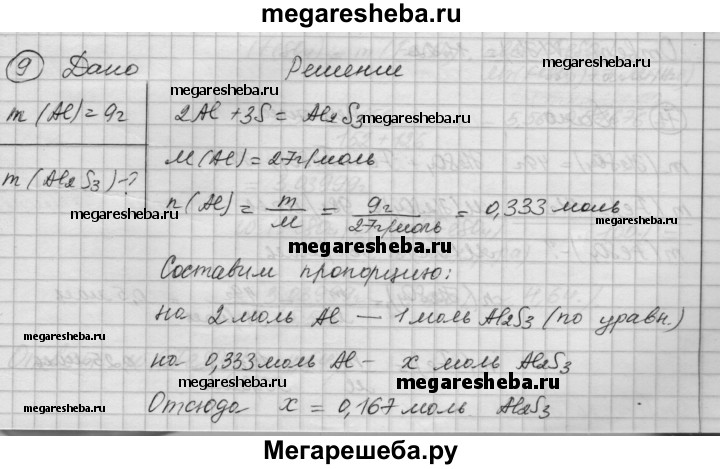 megaresheba.ru
9 Дано Решение
megaresheba.ru megaresheba.ru
m (Al) = 9г 2Al + 3S = Al2S3 megaresheba.ru
M(Al) = 27г/моль
m (Al2S3) - ?
n (Al) = m/M = 9г/27г/моль = 0,333 моль
megaresheba.ru megaresheba.ru
megaresheba.ru
Составим пропорцию:
на 2 моль Al — 1 моль Al2S3 (по уравн.)
megaresheba.ru megaresheba.ru
на 0,333 моль Al - x моль Al2S3
megaresheba.ru megaresheba.ru
Отсюда x = 0,167 моль Al2S3
megaresheba.ru
Мегарешеба.ру